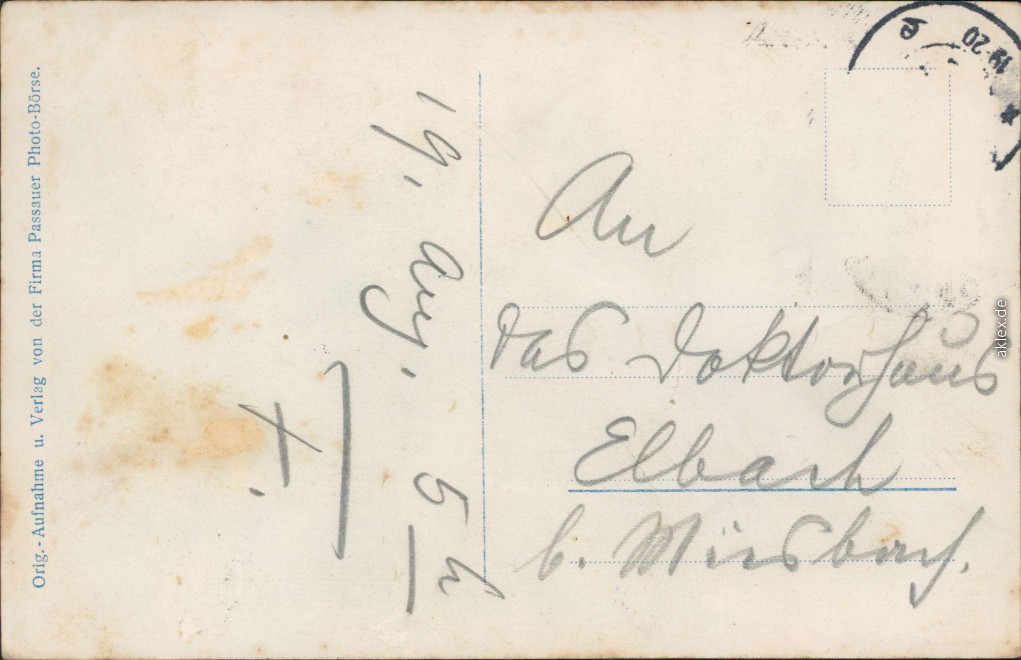 Orig.-Aufnahme u. Verlag von der Firma Passauer Photo-Börse.
19. Aug. 5 h
An
das Doktorhaus
Elbach
b. Miesbach.
19-20
aklex.de